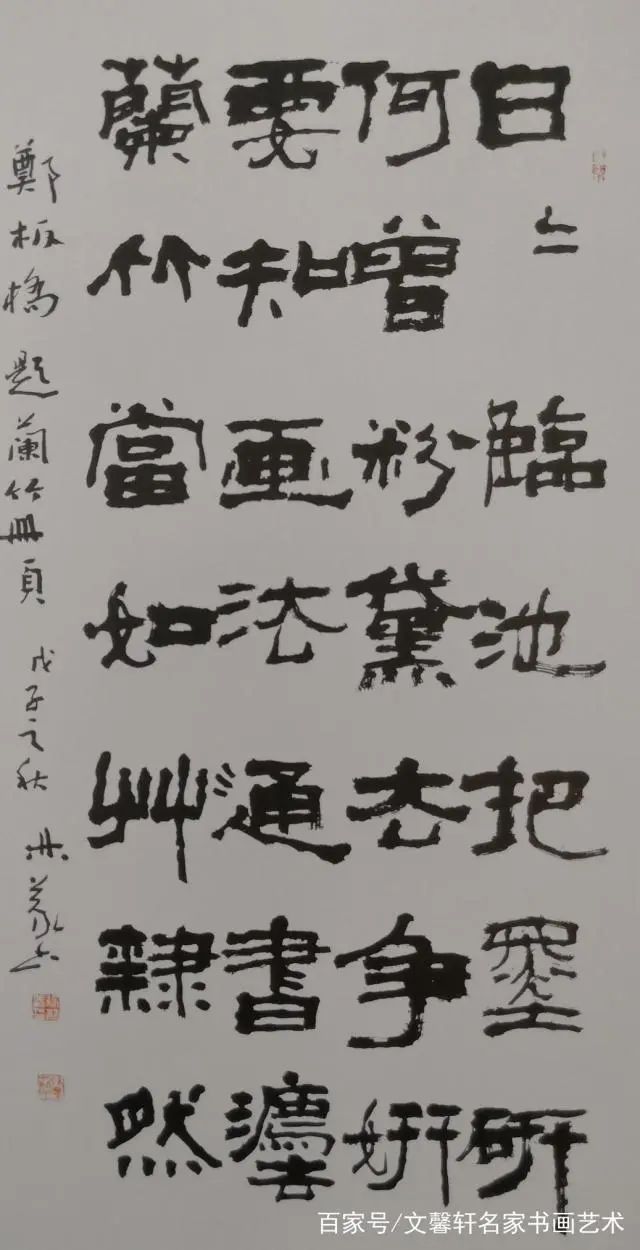 日〻臨池把墨研
何曾粉黛去争妍
要知画法通書灋
蘭竹當如艸隸然
鄭板橋題蘭竹冊頁 戊子之秋
百家号/文馨轩名家书画艺术